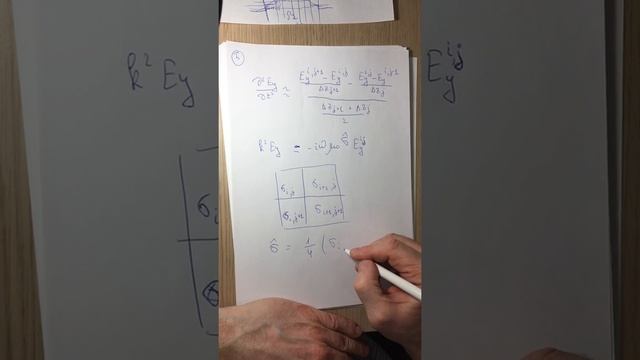 ∂²E_y/∂z² ≃ ((E_y^{i,j+1} - E_y^{i,j})/Δz_{j+1} - (E_y^{i,j} - E_y^{i,j-1})/Δz_j) / ((Δz_{j+1} + Δz_j)/2)
k²E_y = -iωμ₀ σ̂ E_y^{ij}
σ_{i,j} σ_{i+1,j}
σ_{i,j+1} σ_{i+1,j+1}
σ̂ = 1/4 (σ_i